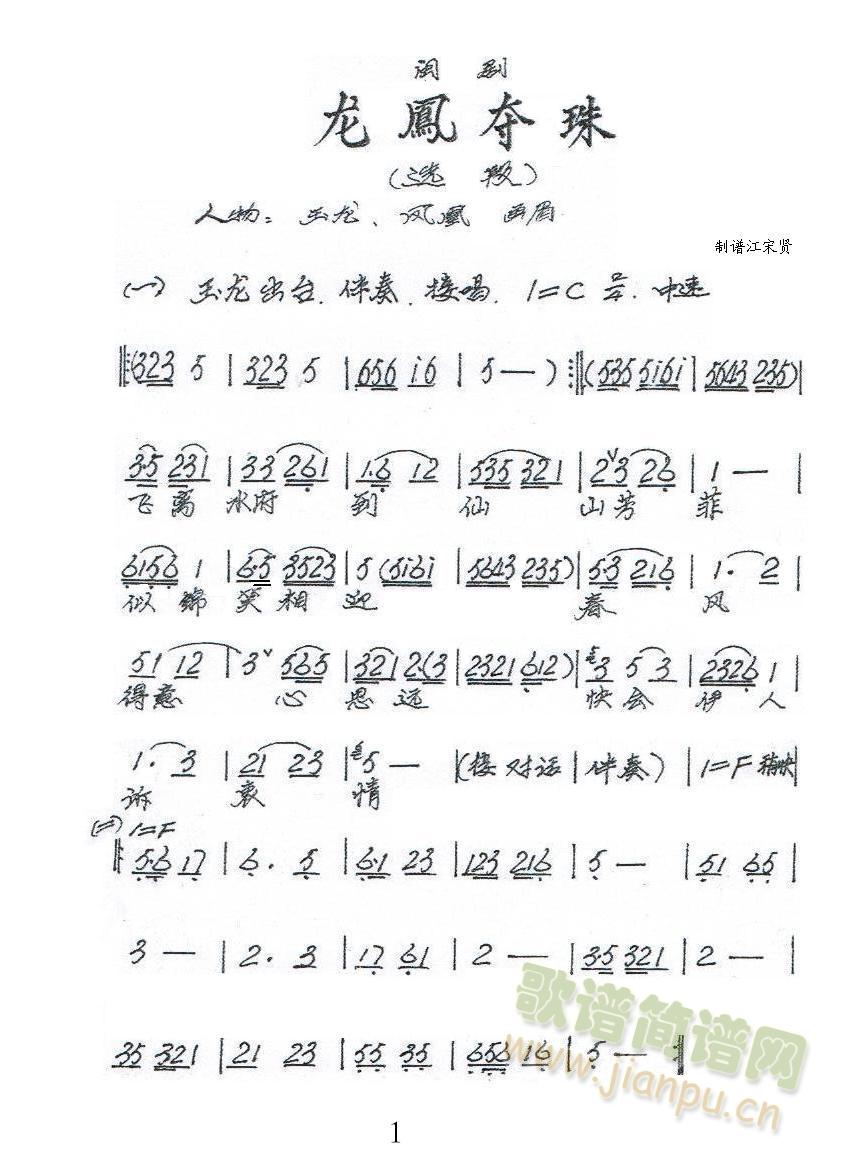 闽剧
龙鳳夺珠
(选段)
人物：玉龙、凤凰 画眉
制谱江宋贤
(一) 玉龙出台、伴奏、接唱、1=C 2/4 中速
‖:(323 5 | 323 5 | 656 i6 | 5 — ) :‖ (535 5i6i | 5643 235) |
3·5 231 | 33 261 | 1·6 12 | 535 321 | 2ˇ3 26 | 1 — |
飞离 水府 到 仙 山芳 菲
6156 1 | 6·5 3523 | 5 (5i6i | 5643 235) | 5·3 216 | 1· 2 |
似锦 笑相迎 春 风
51 12 | 3ˇ 565 | 321 2·(3 | 2321 612) | 3 5 3 | 2326 1 |
得意 心 思 远 快会 伊人
1· 3 | 21 23 | 5 — | (接对话 | 伴奏) | 1=F 稍快 |
诉 衷 情
(二) 1=F
‖: 5·6 17 | 6· 5 | 6·1 23 | 123 216 | 5 — | 51 65 |
3 — | 2· 3 | 17 61 | 2 — | 3·5 321 | 2 — |
35 321 | 21 23 | 55 35 | 656 16 | 5 — :‖
歌谱简谱网
www.jianpu.cn
1